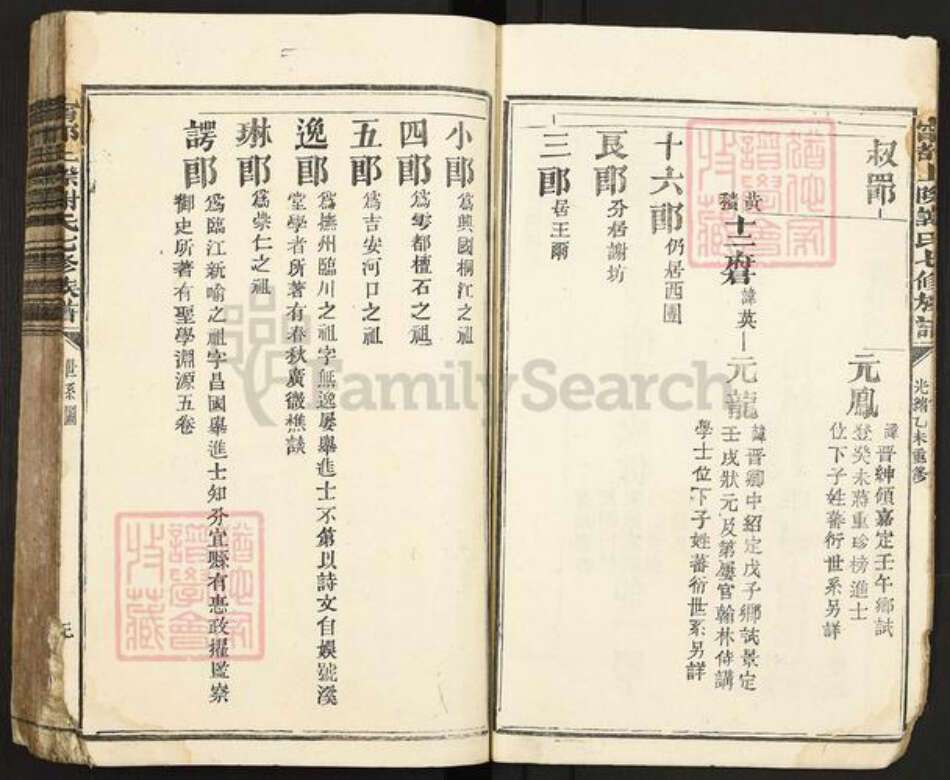 叔郎
元鳳
諱晋紳領嘉定壬午鄉試
登癸未蔣重珍榜進士
位下子姓蕃衍世系另詳
黃
十二府君
諱英
元龍
諱晋卿中紹定戊子鄉試景定
壬戌狀元及第屢官翰林侍講
學士位下子姓蕃衍世系另詳
十六郎
仍居西團
艮郎
分居謝坊
三郎
居王爾
光緒乙未重修
小郎
爲興國桐江之祖
四郎
爲雩都檀石之祖
五郎
爲吉安河口之祖
逸郎
爲撫州臨川之祖字無逸屢舉進士不第以詩文自娛號溪
堂學者所著有春秋廣微樵談
琳郎
爲崇仁之祖
諤郎
爲臨江新喻之祖字昌國舉進士知分宜縣有惠政擢監察
御史所著有聖學淵源五卷
世系圖
FamilySearch